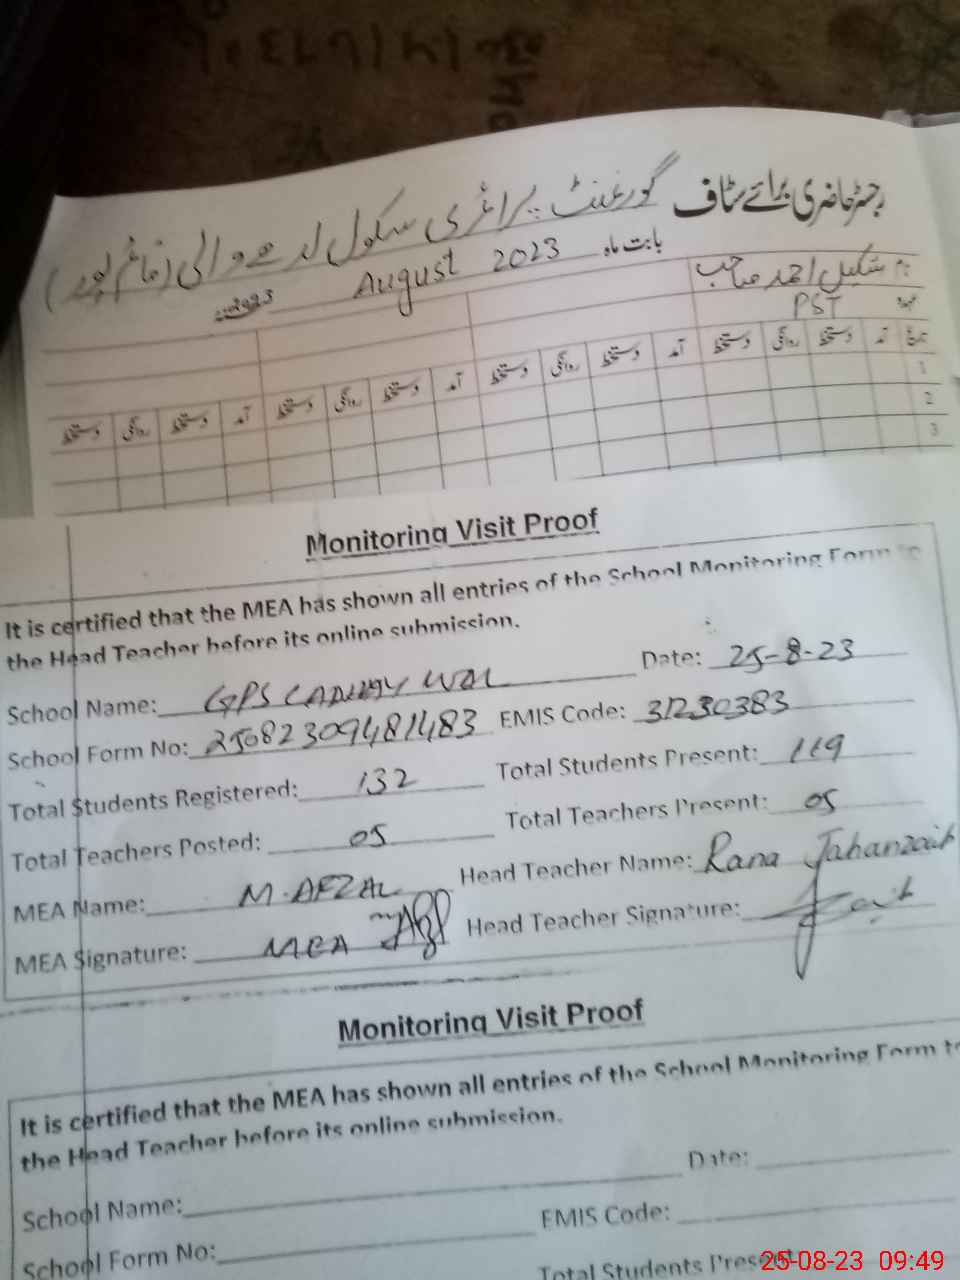 رجسٹر حاضری برائے سٹاف گورنمنٹ پرائمری سکول
بابت ماہ August 2023
نام شکیل احمد صاحب
عہدہ PST
تاریخ آمد دستخط روانگی دستخط آمد دستخط روانگی دستخط آمد دستخط روانگی دستخط آمد دستخط روانگی دستخط
1
2
3
Monitoring Visit Proof
It is certified that the MEA has shown all entries of the School Monitoring Form to
the Head Teacher before its online submission.
School Name: GPS Date: 25-8-23
School Form No: 25082309481483 EMIS Code: 31230383
Total Students Registered: 132 Total Students Present: 119
Total Teachers Posted: 05 Total Teachers Present: 05
MEA Name: M. AFZAL Head Teacher Name: Rana Jahanzaib
MEA Signature: MEA Head Teacher Signature:
Monitoring Visit Proof
It is certified that the MEA has shown all entries of the School Monitoring Form to
the Head Teacher before its online submission.
School Name: Date:
School Form No: EMIS Code:
Total Students Present:
25-08-23 09:49